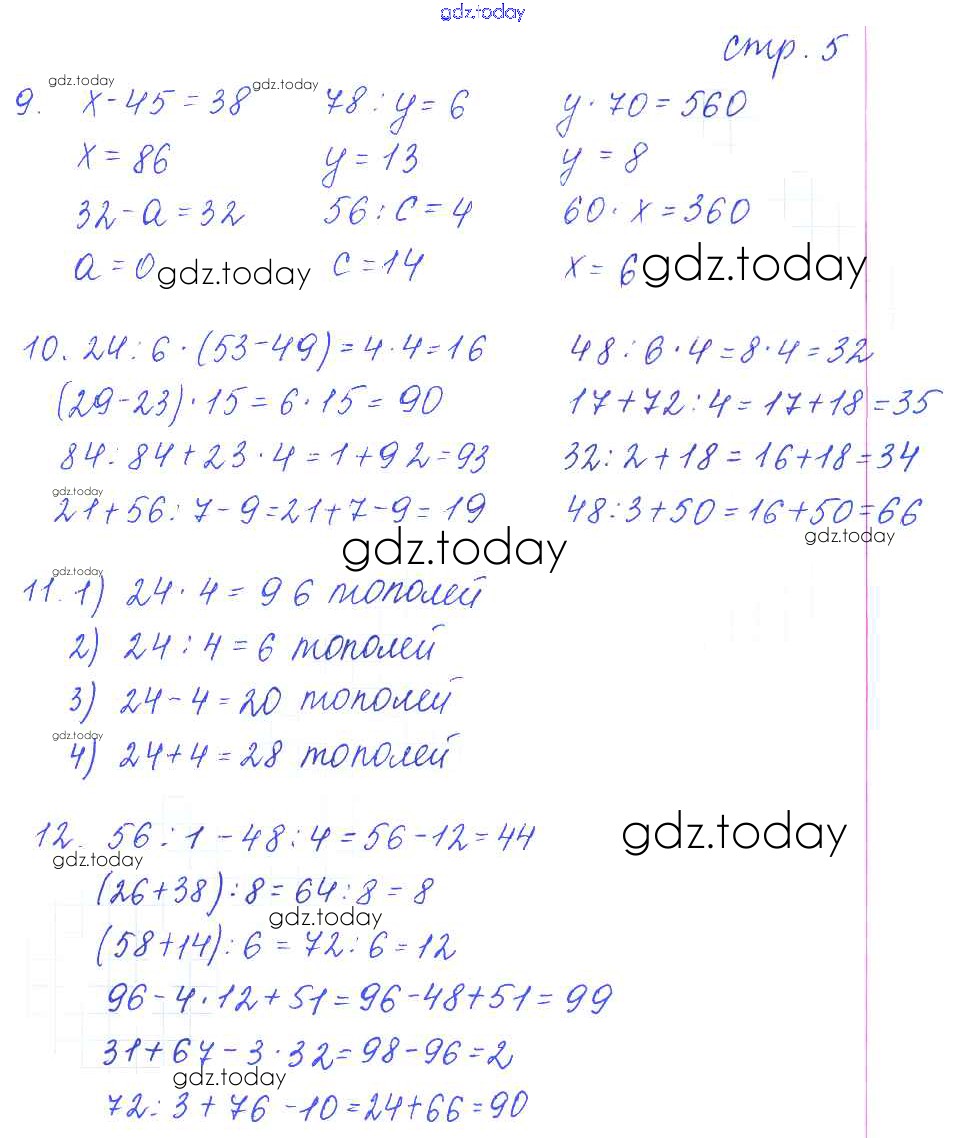 gdz.today
стр. 5
gdz.today gdz.today
9. x-45=38 78:y=6 y·70=560
x=86 y=13 y=8
32-a=32 56:c=4 60·x=360
a=0 gdz.today c=14 x=6 gdz.today
10. 24:6·(53-49)=4·4=16 48:6·4=8·4=32
(29-23)·15=6·15=90 17+72:4=17+18=35
84:84+23·4=1+92=93 32:2+18=16+18=34
gdz.today
21+56:7-9=21+7-9=19 48:3+50=16+50=66
gdz.today gdz.today
gdz.today
11. 1) 24·4=96 тополей
2) 24:4=6 тополей
3) 24-4=20 тополей
gdz.today
4) 24+4=28 тополей
12. 56:1-48:4=56-12=44 gdz.today
gdz.today
(26+38):8=64:8=8
gdz.today
(58+14):6=72:6=12
96-4·12+51=96-48+51=99
31+67-3·32=98-96=2
gdz.today
72:3+76-10=24+66=90